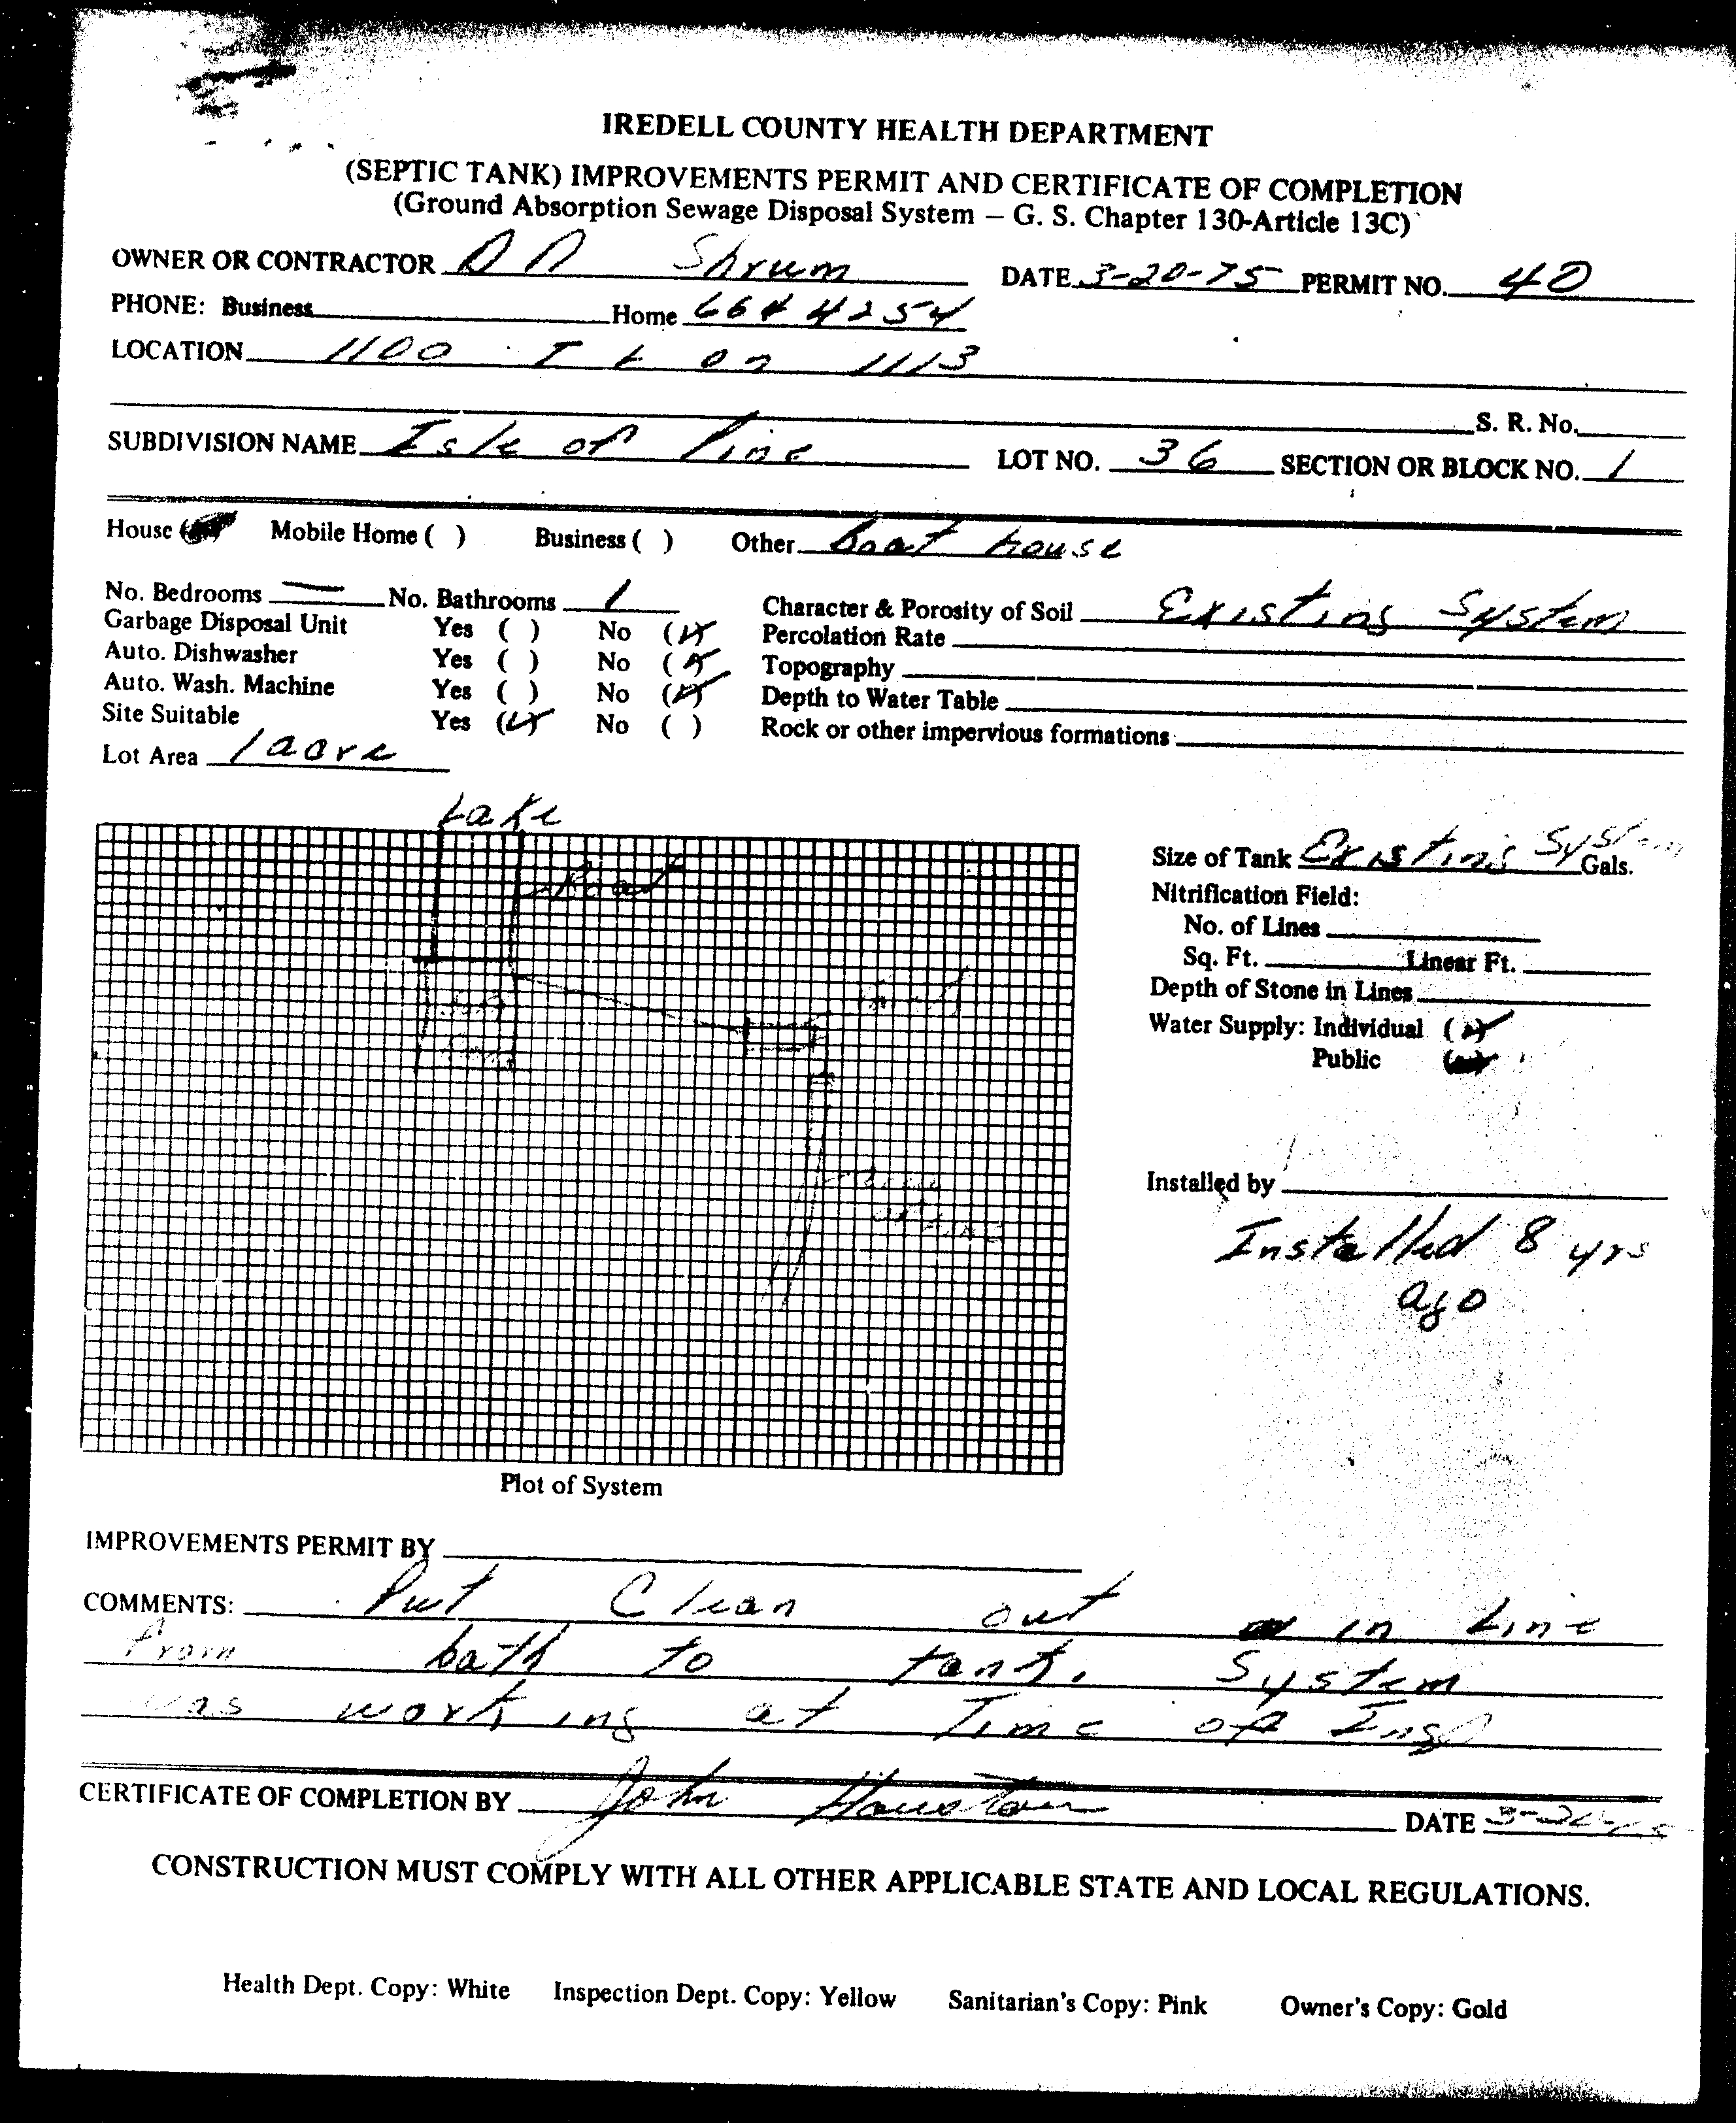 IREDELL COUNTY HEALTH DEPARTMENT
(SEPTIC TANK) IMPROVEMENTS PERMIT AND CERTIFICATE OF COMPLETION
(Ground Absorption Sewage Disposal System – G. S. Chapter 130-Article 13C)
OWNER OR CONTRACTOR Shrum DATE 3-20-75 PERMIT NO. 40
PHONE: Business Home 664 4254
LOCATION 1100 T L on 1113
S. R. No.
SUBDIVISION NAME Isle of Pine LOT NO. 36 SECTION OR BLOCK NO. 1
House Mobile Home ( ) Business ( ) Other Boat house
No. Bedrooms — No. Bathrooms 1 Character & Porosity of Soil Existing System
Garbage Disposal Unit Yes ( ) No (✓) Percolation Rate
Auto. Dishwasher Yes ( ) No (✓) Topography
Auto. Wash. Machine Yes ( ) No (✓) Depth to Water Table
Site Suitable Yes (✓) No ( ) Rock or other impervious formations
Lot Area 1 acre
Lake
Boat
Size of Tank Existing System Gals.
Nitrification Field:
No. of Lines
Sq. Ft. Linear Ft.
Depth of Stone in Lines
Water Supply: Individual (✓)
Public
Installed by
Installed 8 yrs
ago
Plot of System
IMPROVEMENTS PERMIT BY
COMMENTS: Put Clean out in Line
From bath to tank. System
was working at Time of Insp
CERTIFICATE OF COMPLETION BY John Houston DATE
CONSTRUCTION MUST COMPLY WITH ALL OTHER APPLICABLE STATE AND LOCAL REGULATIONS.
Health Dept. Copy: White Inspection Dept. Copy: Yellow Sanitarian's Copy: Pink Owner's Copy: Gold